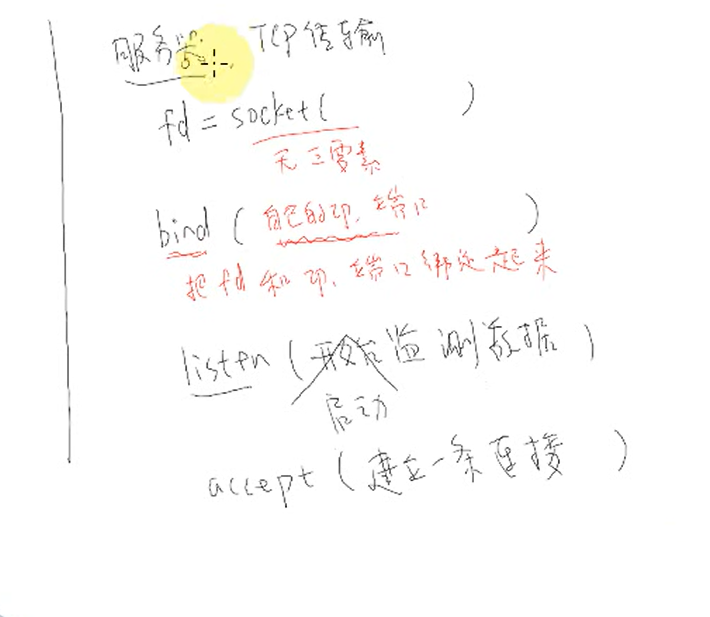 服务器. TCP传输
fd = socket( )
无三要素
bind ( 自己的IP, 端口 )
把 fd 和 IP, 端口绑定起来
listen ( 开始监测数据 )
启动
accept ( 建立一条连接 )